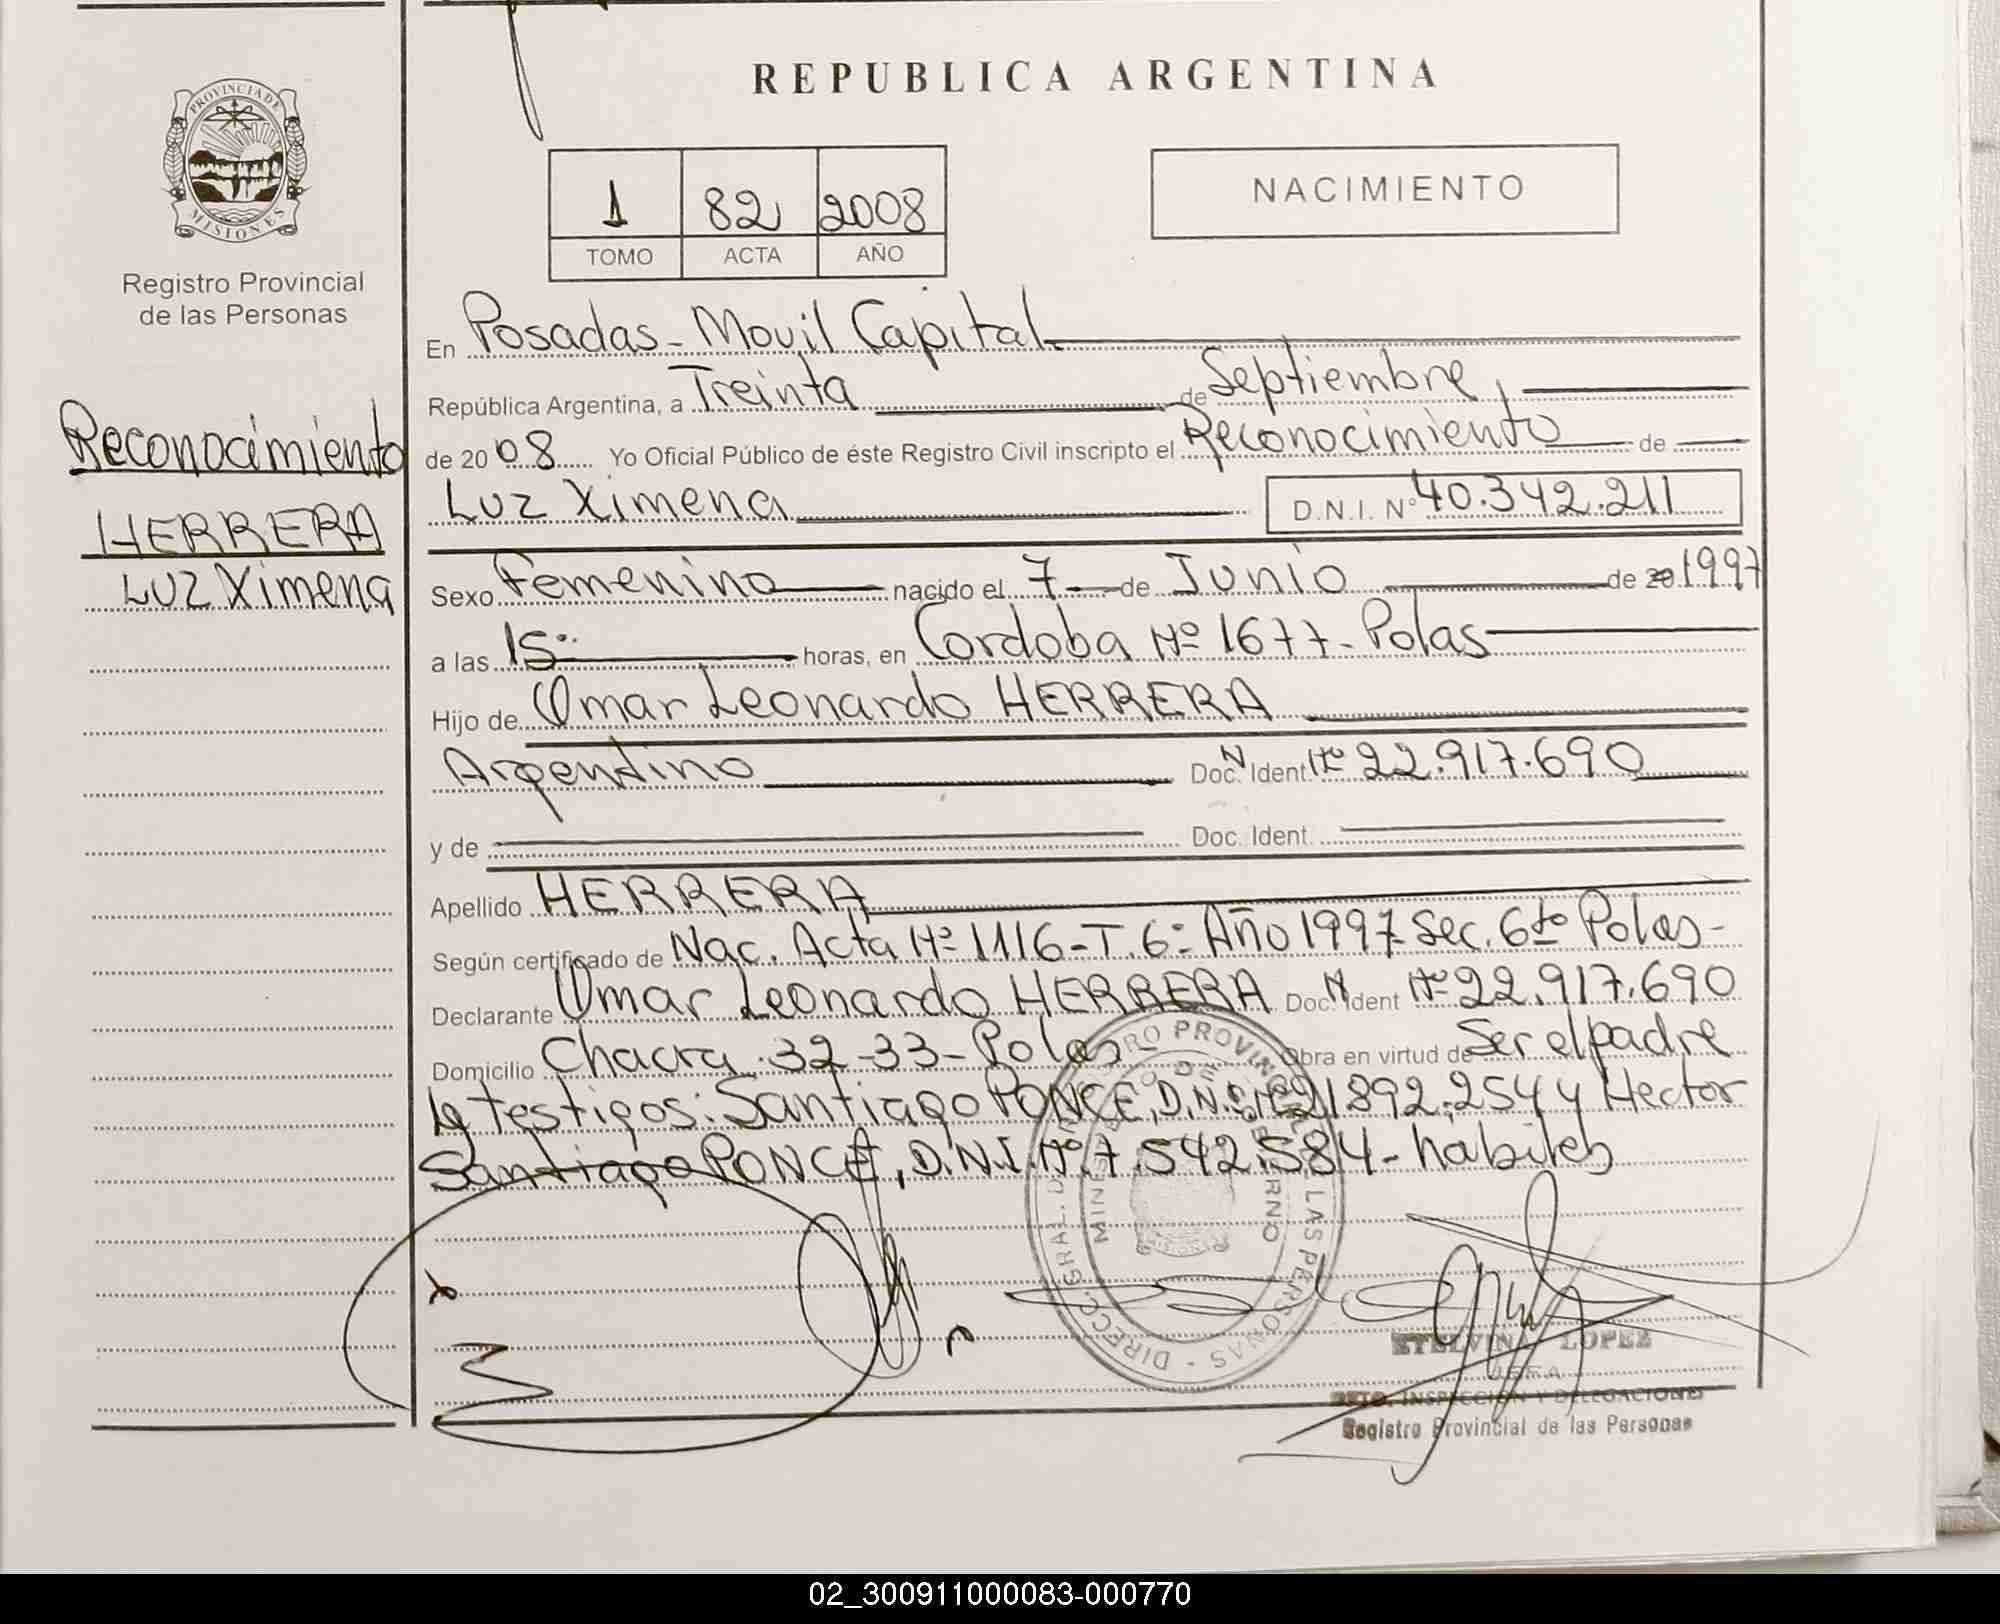 REPUBLICA ARGENTINA
PROVINCIA DE
MISIONES
Registro Provincial
de las Personas
1 82 2008
TOMO ACTA AÑO
NACIMIENTO
Reconocimiento
HERRERA
Luz Ximena
En Posadas - Movil Capital
República Argentina, a Treinta de Septiembre,
de 2008 Yo Oficial Público de éste Registro Civil inscripto el Reconocimiento de
Luz Ximena D.N.I. Nº 40.342.211
Sexo Femenino nacido el 7 de Junio de 1997
a las 15: horas, en Cordoba Nº 1677 - Polas
Hijo de Omar Leonardo HERRERA
Argentino Doc. N. Ident Nº 22.917.690
y de Doc. Ident.
Apellido HERRERA
Según certificado de Nac. Acta Nº 1116 - T. 6: Año 1997 Sec. 6to Polas -
Declarante Omar Leonardo HERRERA Doc. N Ident Nº 22.917.690
Domicilio Chacra 32-33 - Polas Obra en virtud de Ser el padre
testigos: Santiago PONCE, D.N.I. Nº 21892.254 y Hector
Santiago PONCE, D.N.I. Nº 7.542.584 - habiles
DIRECC. GRAL. PROVINCIAL DE LAS PERSONAS
ETELVINA LOPEZ
JEFA
DPTO. INSPECCION Y DELEGACIONES
Registro Provincial de las Personas
02_300911000083-000770